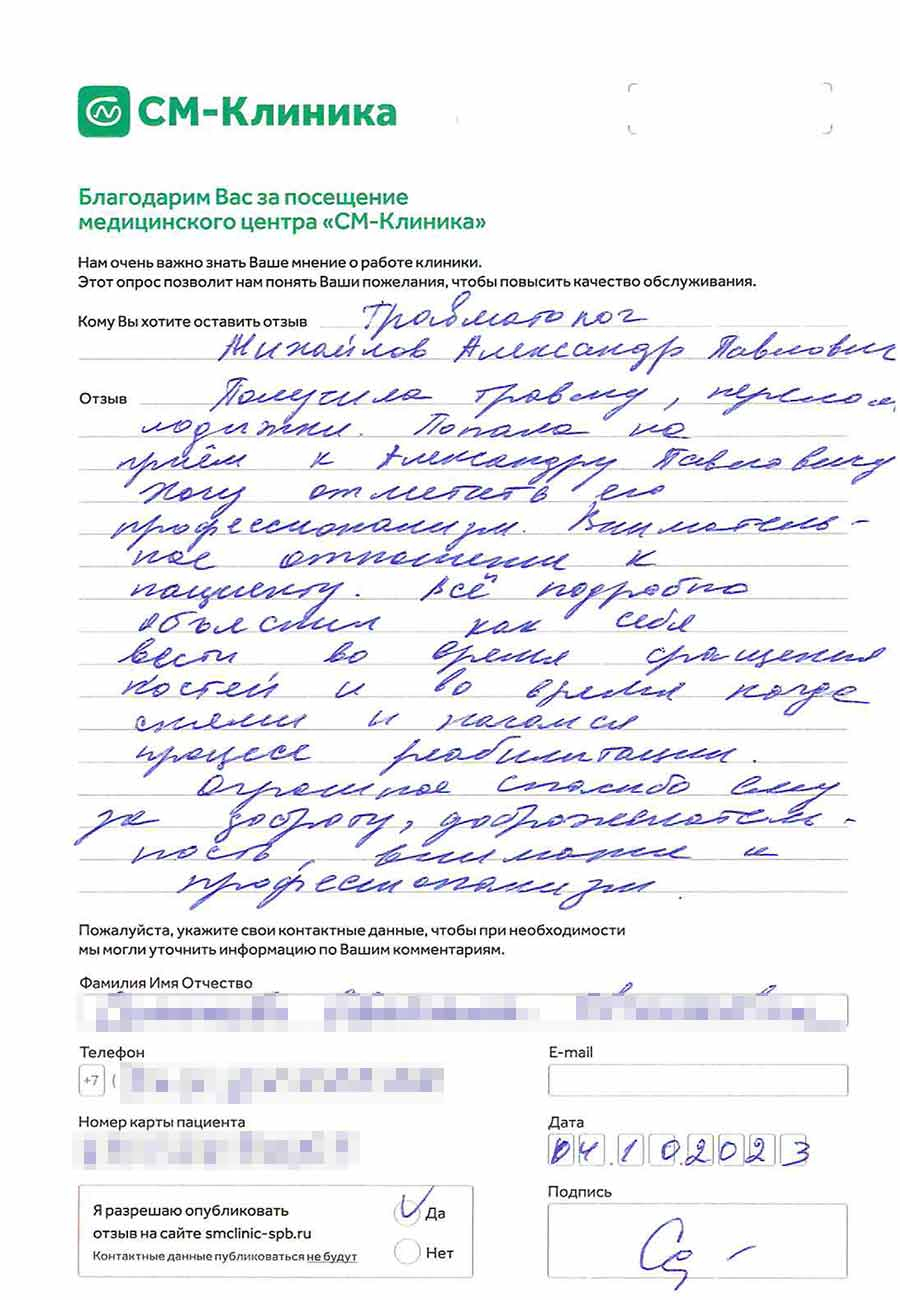 СМ-Клиника
Благодарим Вас за посещение
медицинского центра «СМ-Клиника»
Нам очень важно знать Ваше мнение о работе клиники.
Этот опрос позволит нам понять Ваши пожелания, чтобы повысить качество обслуживания.
Кому Вы хотите оставить отзыв Травматолог
Михайлов Александр Павлович
Отзыв Получила травму, перелом
лодыжки. Попала на
приём к Александру Павловичу
Хочу отметить его
профессионализм. Вниматель-
ное отношение к
пациенту. Всё подробно
объяснил как себя
вести во время сращения
костей и во время когда
сняли и начался
процесс реабилитации.
Огромное спасибо ему
за доброту, доброжелатель-
ность, внимание и
профессионализм.
Пожалуйста, укажите свои контактные данные, чтобы при необходимости
мы могли уточнить информацию по Вашим комментариям.
Фамилия Имя Отчество
Телефон E-mail
+7 (
Номер карты пациента Дата
04.10.2023
Я разрешаю опубликовать Да
отзыв на сайте smclinic-spb.ru
Контактные данные публиковаться не будут Нет
Подпись